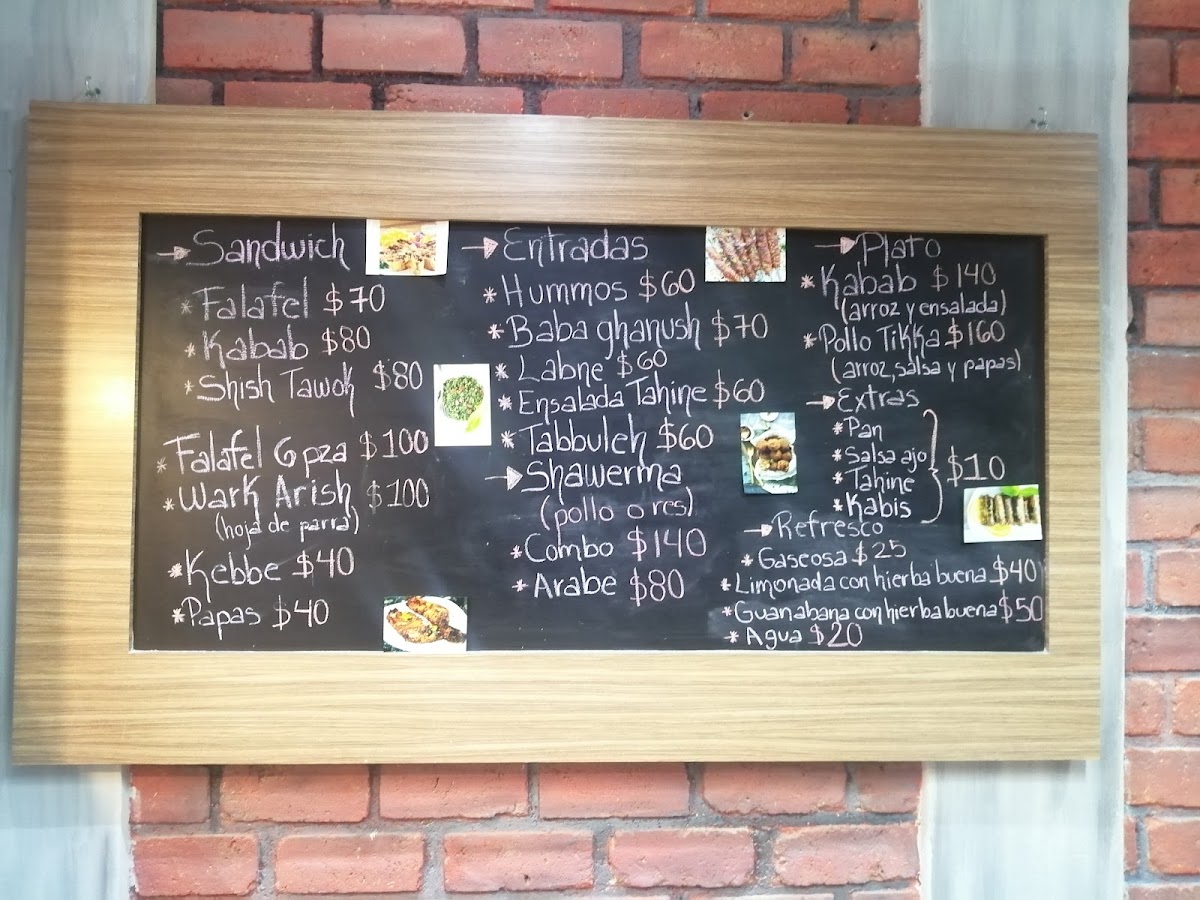 Sandwich
* Falafel $70
* Kabab $80
* Shish Tawok $80
* Falafel 6 pza $100
* Wark Arish $100
(hoja de parra)
* Kebbe $40
* Papas $40
Entradas
* Hummos $60
* Baba ghanush $70
* Labne $60
* Ensalada Tahine $60
* Tabbuleh $60
Shawerma
(pollo o res)
* Combo $140
* Arabe $80
Plato
* Kabab $140
(arroz y ensalada)
* Pollo Tikka $160
(arroz, salsa y papas)
Extras
* Pan
* Salsa ajo
* Tahine
* Kabis
$10
Refresco
* Gaseosa $25
* Limonada con hierba buena $40
* Guanabana con hierba buena $50
* Agua $20